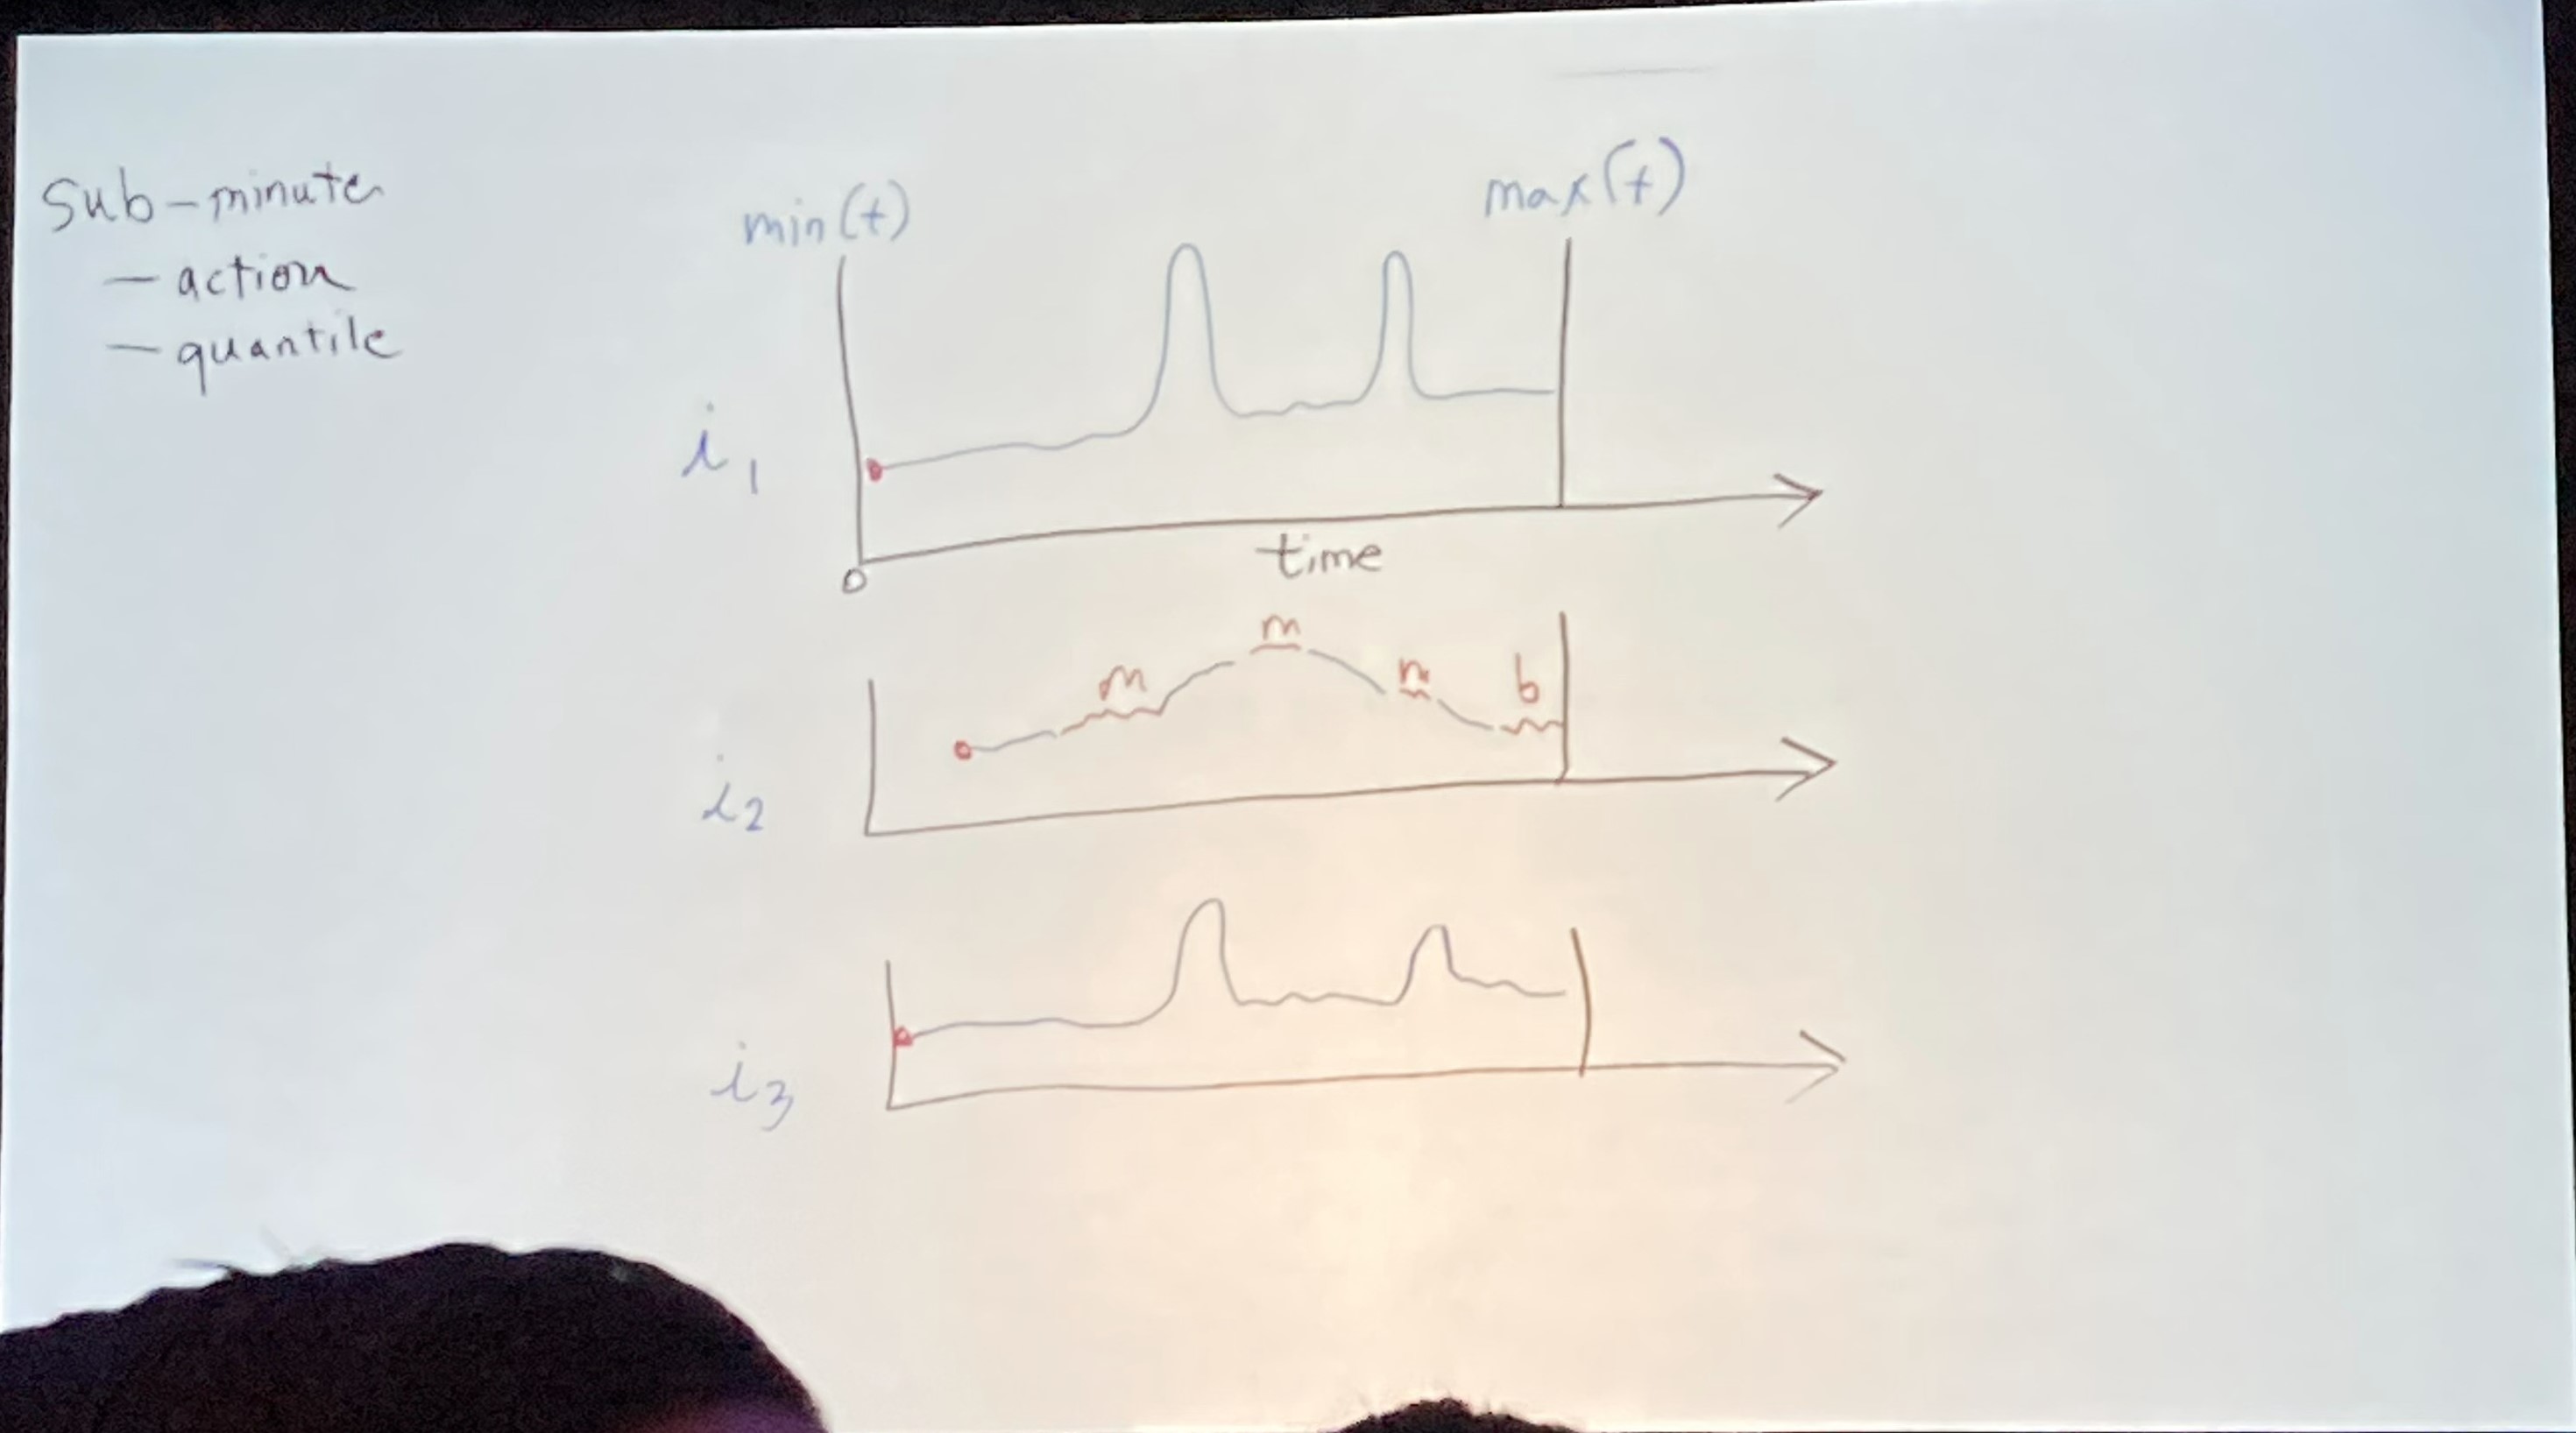 Sub-minute
— action
— quantile
min(t)
max(t)
i1
0
time
m
m
n
b
i2
i3